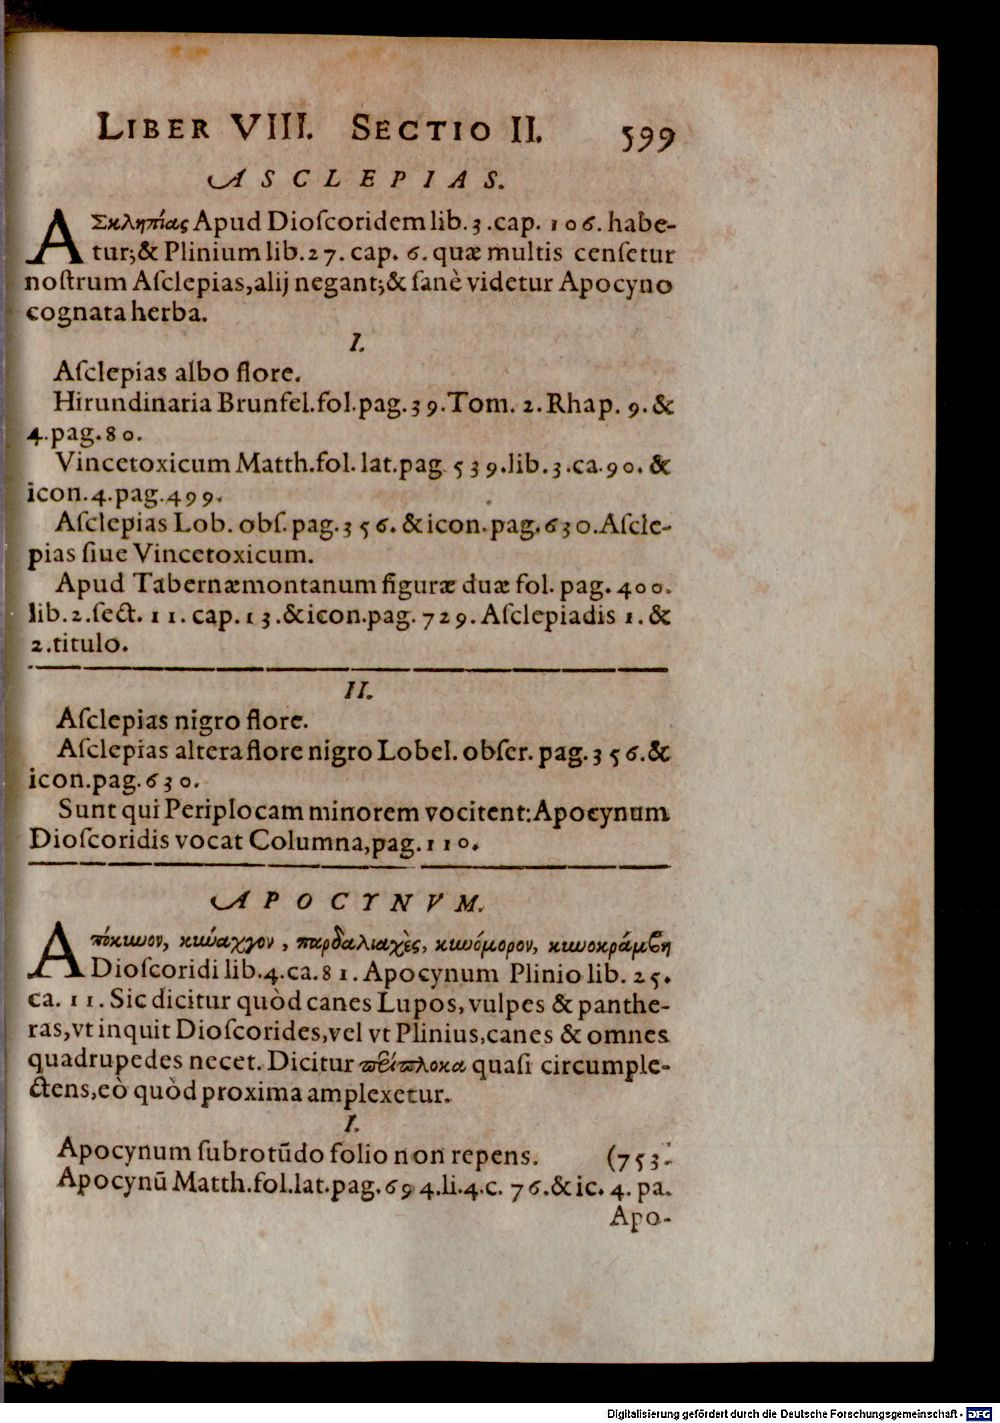 LIBER VIII. SECTIO II. 599
ASCLEPIAS.
AΣκληπίας Apud Dioſcoridem lib. 3. cap. 106. habe-
tur; & Plinium lib. 27. cap. 6. quæ multis cenſetur
noſtrum Aſclepias, alij negant; & ſanè videtur Apocyno
cognata herba.
I.
Aſclepias albo flore.
Hirundinaria Brunfel. fol. pag. 39. Tom. 2. Rhap. 9. &
4. pag. 80.
Vincetoxicum Matth. fol. lat. pag. 539. lib. 3. ca. 90. &
icon. 4. pag. 499.
Aſclepias Lob. obſ. pag. 356. & icon. pag. 630. Aſcle-
pias ſiue Vincetoxicum.
Apud Tabernæmontanum figuræ duæ fol. pag. 400.
lib. 2. ſect. 11. cap. 13. & icon. pag. 729. Aſclepiadis 1. &
2. titulo.
II.
Aſclepias nigro flore.
Aſclepias altera flore nigro Lobel. obſer. pag. 356. &
icon. pag. 630.
Sunt qui Periplocam minorem vocitent: Apocynum
Dioſcoridis vocat Columna, pag. 110.
APOCYNVM.
Aπόκυνον, κυνάγχον, παρδαλιαγχὲς, κυνόμορον, κυνοκράμβη
Dioſcoridi lib. 4. ca. 81. Apocynum Plinio lib. 25.
ca. 11. Sic dicitur quòd canes Lupos, vulpes & panthe-
ras, vt inquit Dioſcorides, vel vt Plinius, canes & omnes
quadrupedes necet. Dicitur περίπλοκα quaſi circumple-
ctens, eò quòd proxima amplexetur.
I.
Apocynum ſubrotūdo folio non repens. (753.
Apocynū Matth. fol. lat. pag. 694. li. 4. c. 76. & ic. 4. pa.
Apo-
Digitalisierung gefördert durch die Deutsche Forschungsgemeinschaft - DFG